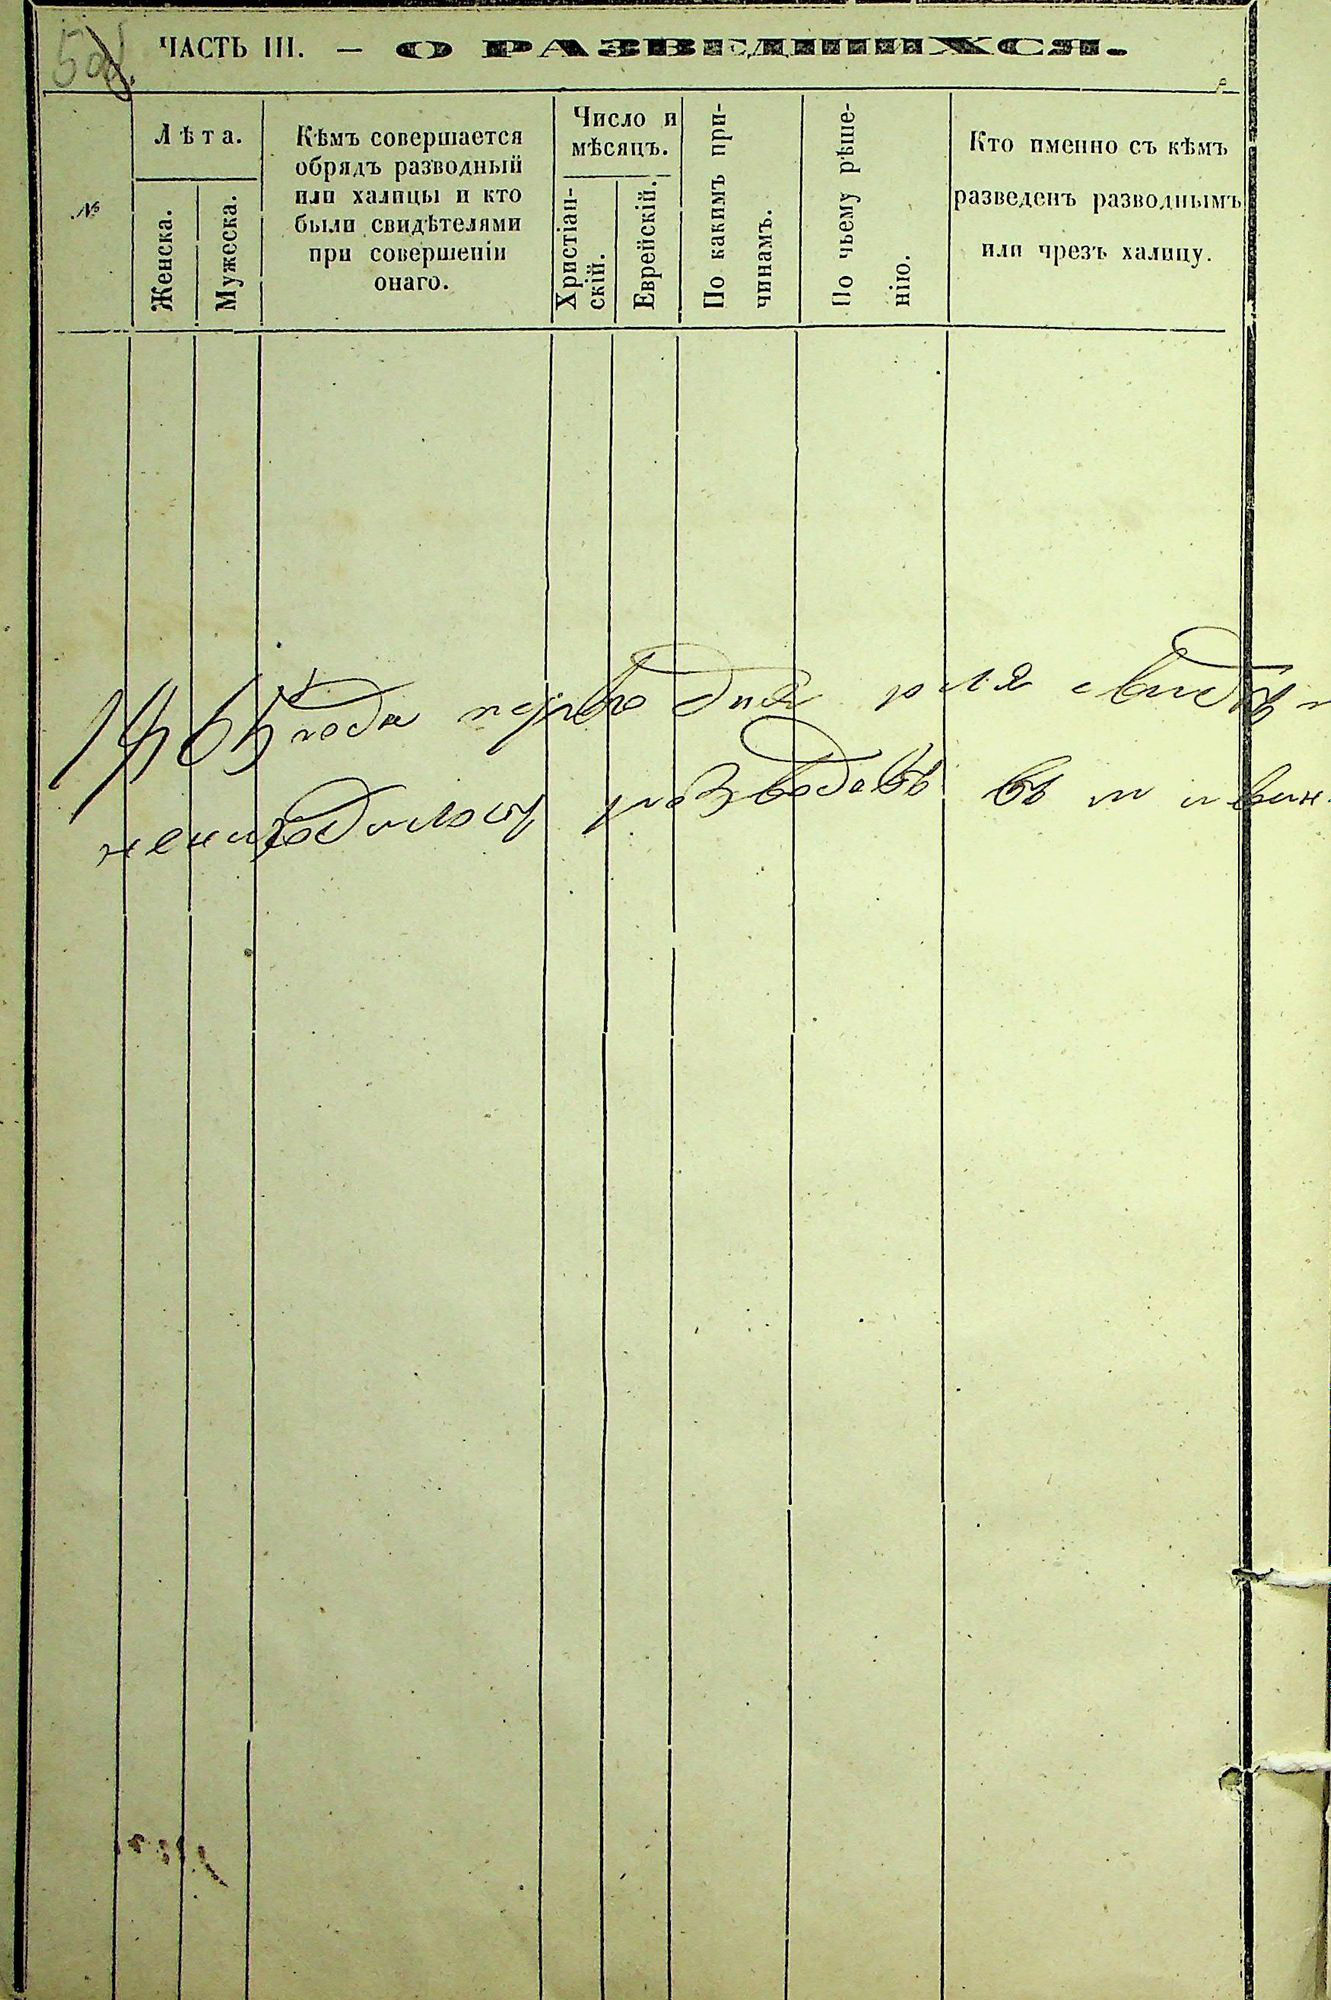 ЧАСТЬ III. — О РАЗВЕДШИХСЯ.
№
Лѣта.
Женска.
Мужеска.
Кѣмъ совершается
обрядъ разводный
или халицы и кто
были свидѣтелями
при совершеніи
онаго.
Число и
мѣсяцъ.
Христіан-
скій.
Еврейскій.
По какимъ при-
чинамъ.
По чьему рѣше-
нію.
Кто именно съ кѣмъ
разведенъ разводнымъ
или чрезъ халицу.
1865 года дня
разводовъ въ